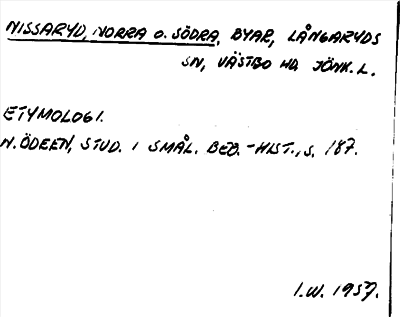 NISSARYD, NORRA O. SÖDRA, BYAR, LÅNGARYDS
SN, VÄSTBO HD JÖNK. L.
ETYMOLOGI.
N. ÖDEEN, STUD. I SMÅL. BEB.-HIST., S. 187.
I.W. 1957.